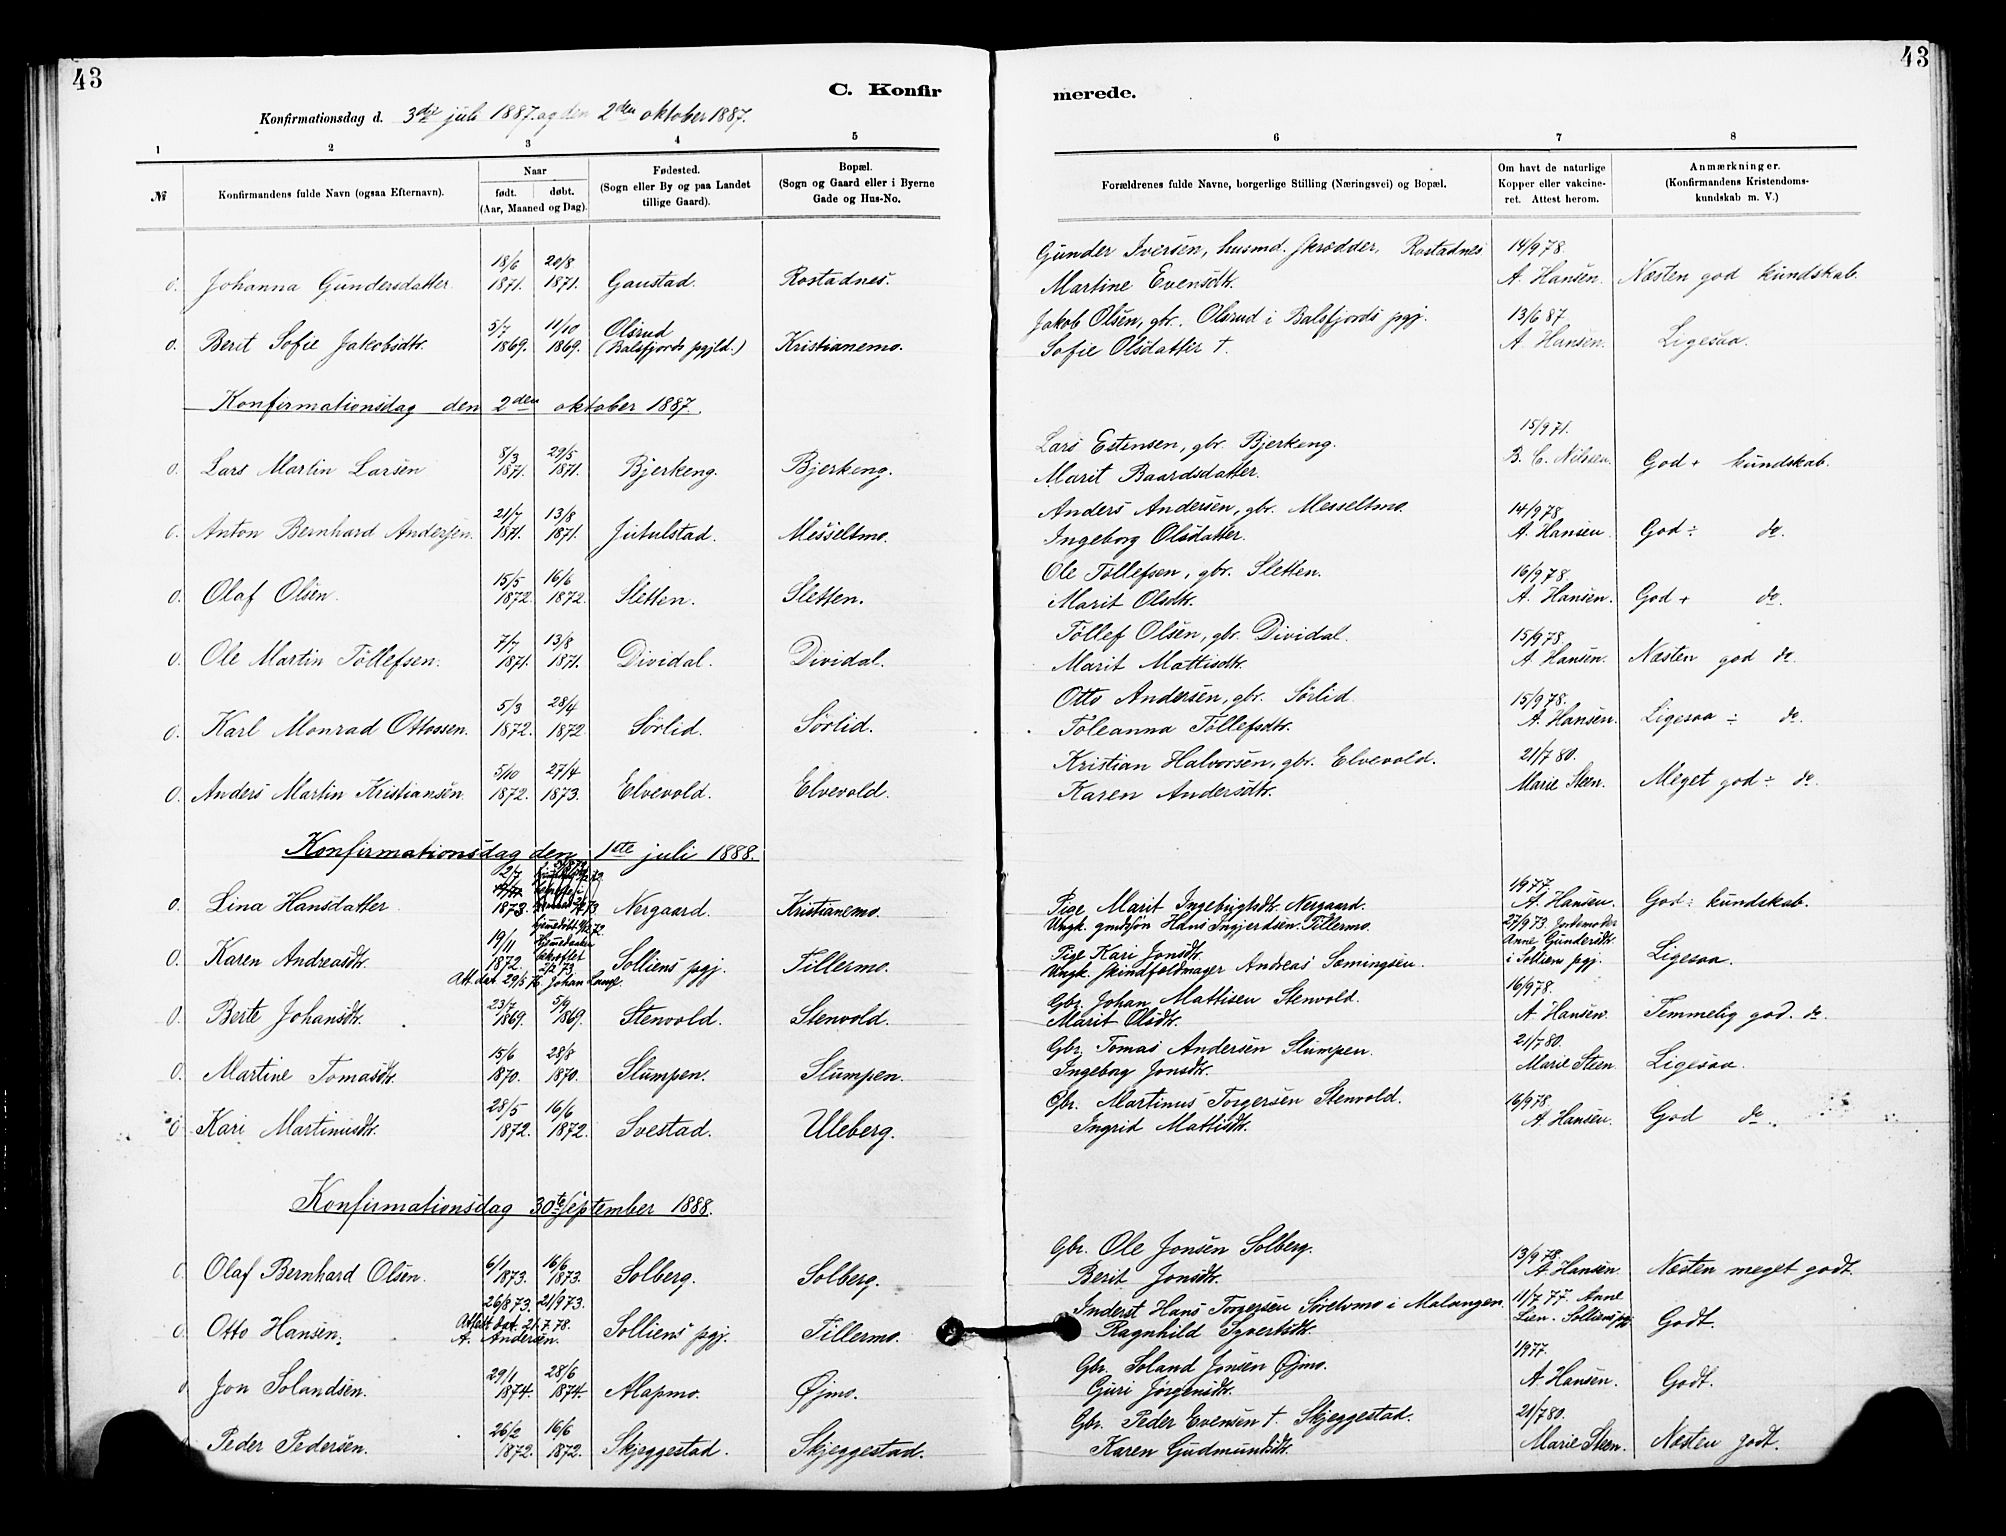 43
43
C. Konfir
merede.
Konfirmationsdag d. 3die juli 1887. og den 2den oktober 1887.
1 2 3 4 5 6 7 8
№
Konfirmandens fulde Navn (ogsaa Efternavn).
Naar
født. døbt.
(Aar, Maaned og Dag).
Fødested.
(Sogn eller By og paa Landet
tillige Gaard).
Bopæl.
(Sogn og Gaard eller i Byerne
Gade og Hus-No.
Forældrenes fulde Navne, borgerlige Stilling (Næringsvei) og Bopæl.
Om havt de naturlige
Kopper eller vakcine-
ret. Attest herom.
Anmærkninger.
(Konfirmandens Kristendoms-
kundskab m. V.)
18/6 20/8 Gunder Iversen, husmd. skrædder, Rostadnes 14/9 78.
0. Johanna Gundersdatter 1871. 1871. Gaustad. Rostadnes. Martine Evensdtr. A. Hansen. Næsten god kundskab.
5/7 11/10 Olsrud Jakob Olsen, gbr. Olsrud i Balsfjords pgj. 13/6 87
0. Berit Sofie Jakobsdtr. 1869. 1869. (Balsfjords pgjld.) Kristianemo. Sofie Olsdatter †. A. Hansen. Ligesaa.
Konfirmationsdag den 2den oktober 1887.
8/3 29/5 Lars Estensen, gbr. Bjerkeng. 15/9 71.
0. Lars Martin Larsen 1871. 1871. Bjerkeng. Bjerkeng. Marit Baardsdatter. B. C. Nilsen. God + kundskab.
21/7 13/8 Anders Andersen, gbr. Messeltmo. 14/9 78
0. Anton Bernhard Andersen. 1871. 1871. Jutulstad. Messeltmo. Ingeborg Olsdatter. A. Hansen. God ÷ do.
15/5 16/6 Ole Tollefsen, gbr. Sletten. 16/9 78.
0. Olaf Olsen. 1872. 1872. Sletten. Sletten. Marit Olsdtr. A. Hansen. God + do.
7/7 13/8 Tollef Olsen, gbr. Dividal. 15/9 78.
0. Ole Martin Tollefsen. 1871. 1871. Dividal. Dividal. Marit Mattisdtr. A. Hansen. Næsten god do.
5/3 28/4 Otto Andersen, gbr. Sørlid. 15/9 78.
0. Karl Monrad Ottossen. 1872. 1872. Sørlid. Sørlid. Toleanna Tollefsdtr. A. Hansen. Ligesaa ÷ do.
5/10 27/4 Kristian Halvorsen, gbr. Elvevold. 21/7 80.
0. Anders Martin Kristiansen. 1872. 1873. Elvevold. Elvevold. Karen Andersdtr. Marie Steen. Meget god ÷ do.
Konfirmationsdag den 1ste juli 1888.
12/7 Pige Marit Ingebrigtsdtr. Nergaard. 19 77.
0. Lina Hansdatter. 1873. Nergaard. Kristianemo. Ungk. gmdsøn Hans Ingjerdsen Tillermo. A. Hansen. God ÷ kundskab.
19/11 Hjemedøbt Pige Kari Jonsdtr. 27/9 73. Jordemoder Anne Gundersdtr
0. Karen Andreasdtr. 1872. 2/2 73 Solliens pgj. Tillermo. Ungk. skindfeldmager Andreas Somingsen. i Solliens pgj. Ligesaa.
Att. dat. 29/5 76 Johan Lange.
23/7 5/9 Gbr. Johan Mattisen Stenvold. 16/9 78.
0. Berte Johansdtr. 1869. 1869. Stenvold. Stenvold. Marit Olsdtr. A. Hansen. Temmelig god. do.
15/6 28/8 Gbr. Tomas Andersen Slumpen. 21/7 80.
0. Martine Tomasdtr. 1870. 1870. Slumpen. Slumpen. Ingeborg Jonsdtr. Marie Steen. Ligesaa.
28/5 16/6 Gbr. Martinus Torgersen Stenvold. 16/9 78.
0 Kari Martinusdtr. 1872. 1872. Svestad. Uleberg. Ingrid Mattisdtr. A. Hansen. God do.
Konfirmationsdag 30te september 1888.
6/1 16/6 Gbr. Ole Jonsen Solberg. 13/9 78.
0. Olaf Bernhard Olsen. 1873. 1873. Solberg. Solberg. Berit Jonsdtr. A. Hansen. Næsten meget godt.
26/8 73. 21/9 73. Inderst Hans Torgersen Sørelvmo i Malangen. 11/7 77. Anne
0. Otto Hansen. Attest dat. 21.7.78. A. Andersen. Solliens pgj. Tillermo. Ragnhild Syvertsdtr. Lien. Solliens pgj. Godt.
29/1 28/6 Gbr. Soland Jonsen Øjmo. 19 77.
0 Jon Solandsen. 1874. 1874. Alapmo. Øjmo. Guri Jørgensdtr. A. Hansen. Godt.
26/2 16/6 Gbr. Peder Evensen †. Skjeggestad. 21/7 80.
Peder Pedersen. 1872. 1872. Skjeggestad. Skjeggestad. Karen Gudmundsdtr. Marie Steen. Næsten godt.